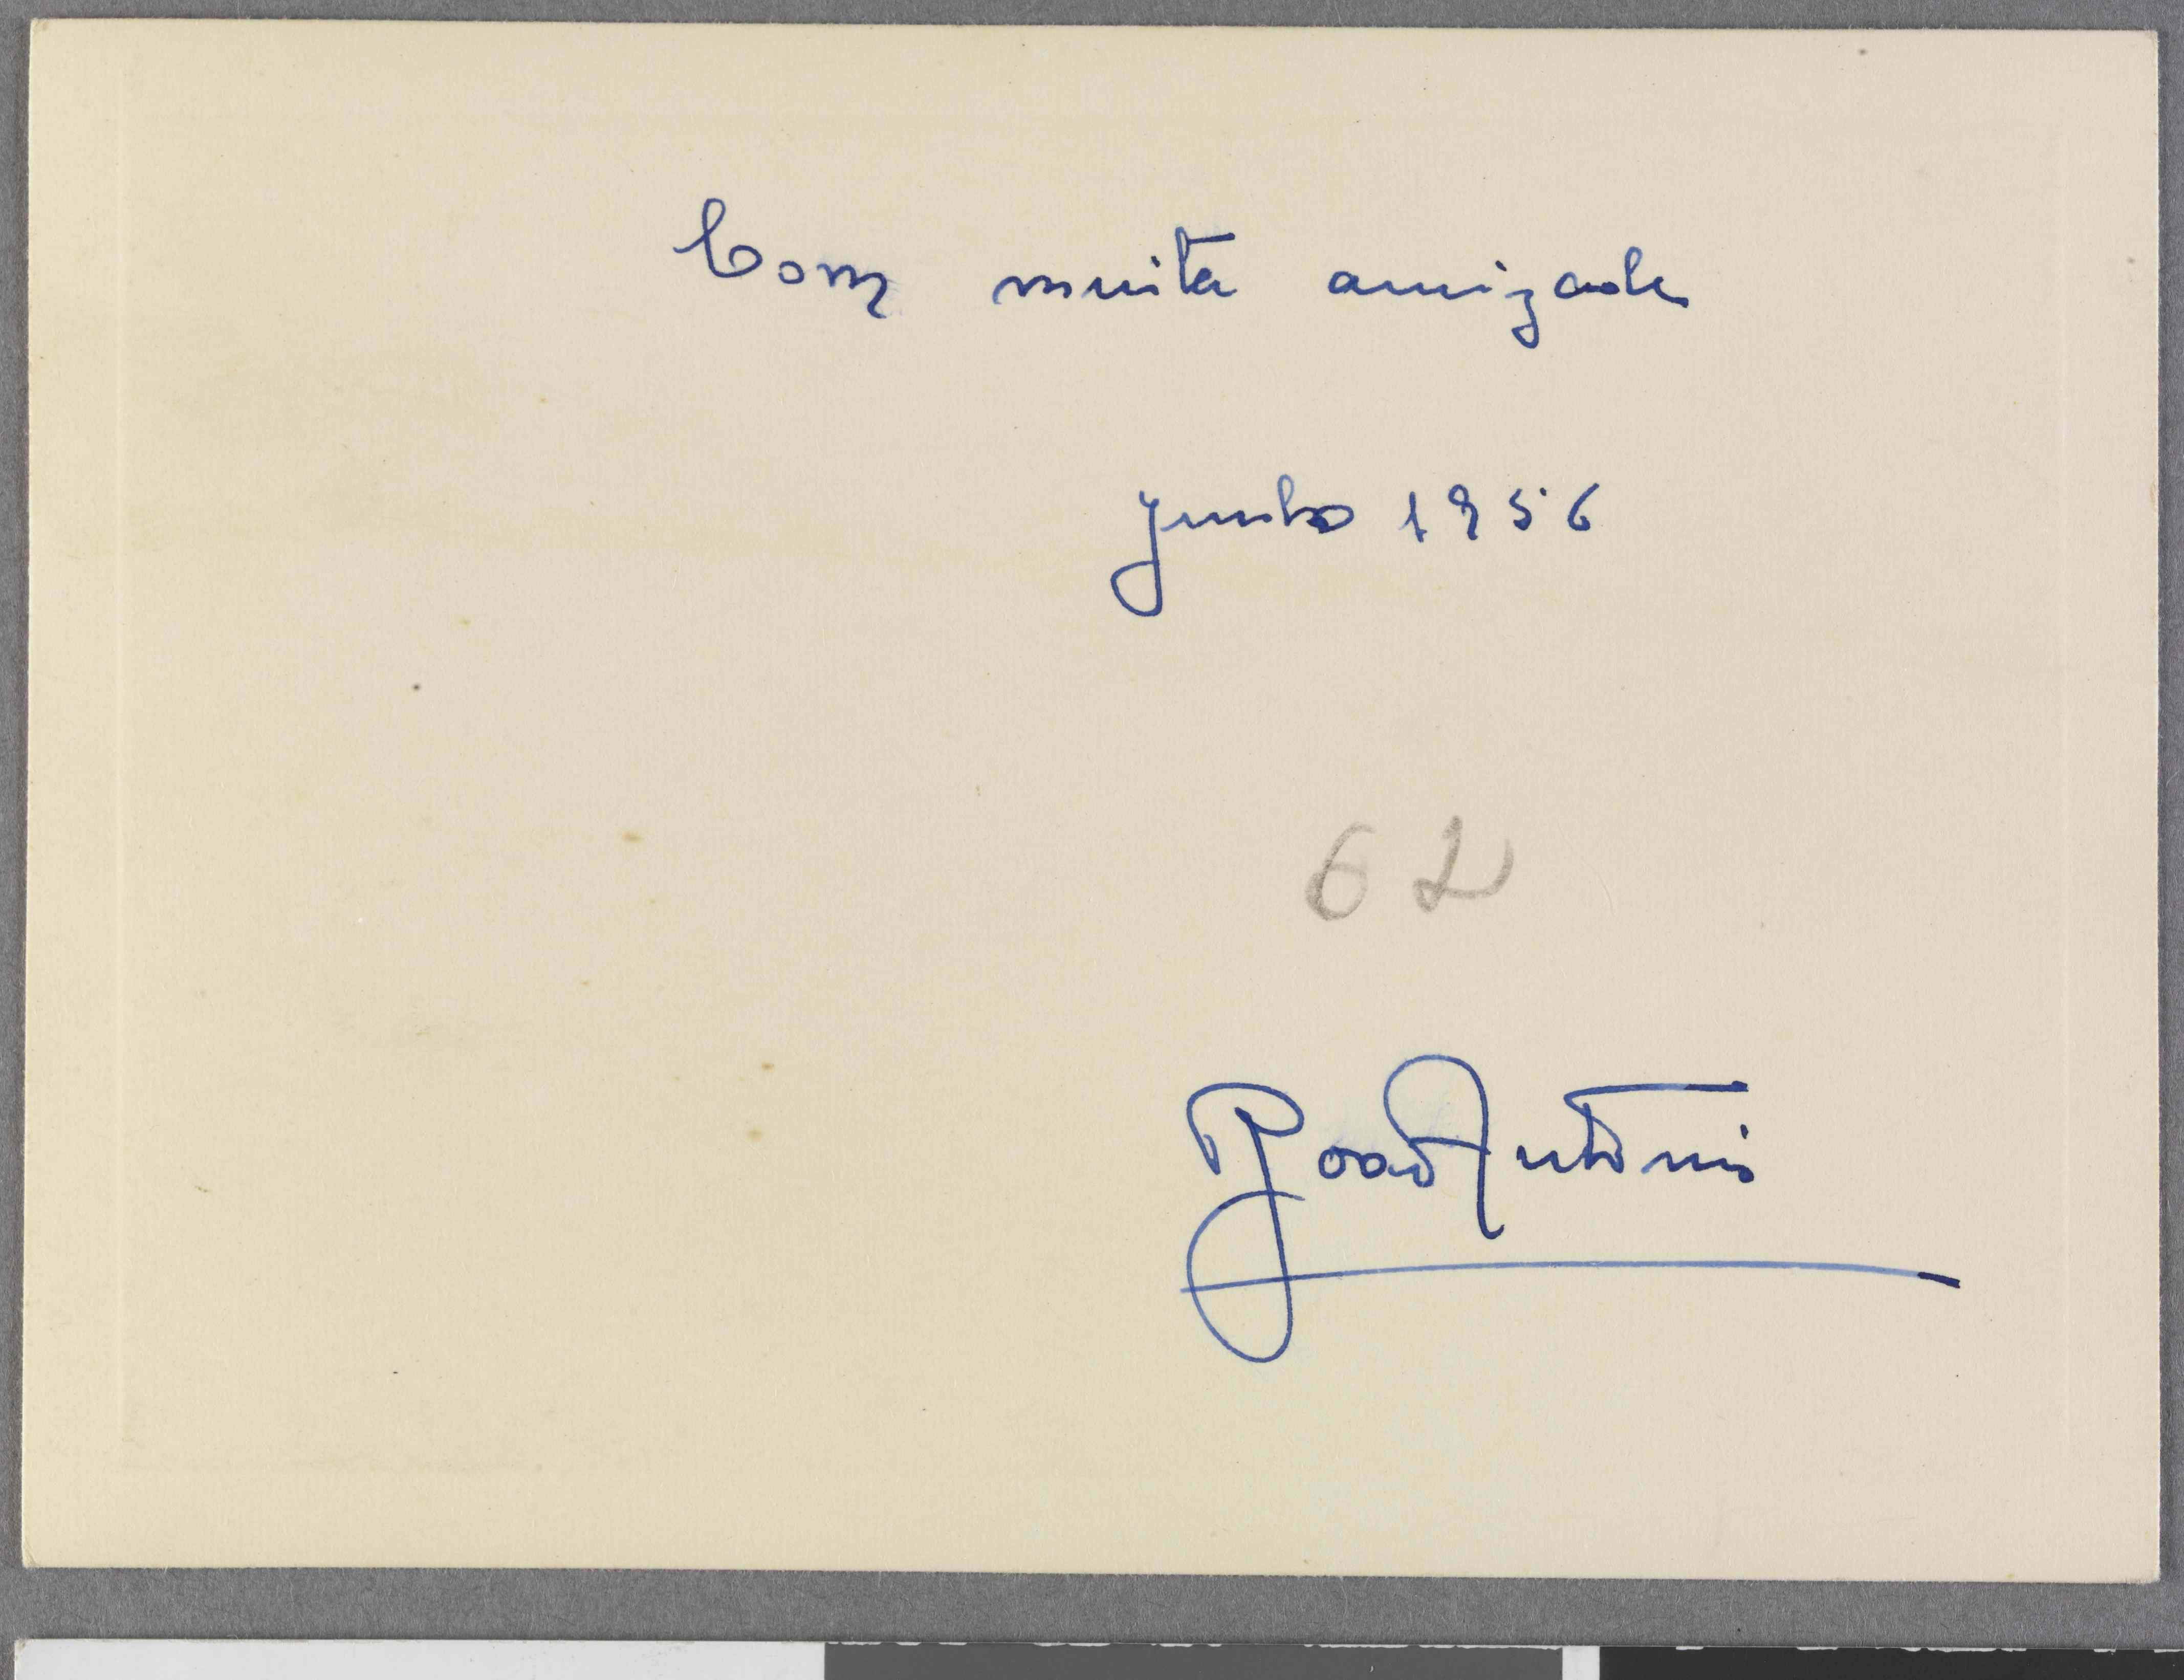 Com muita amizade
junho 1956
62
João António